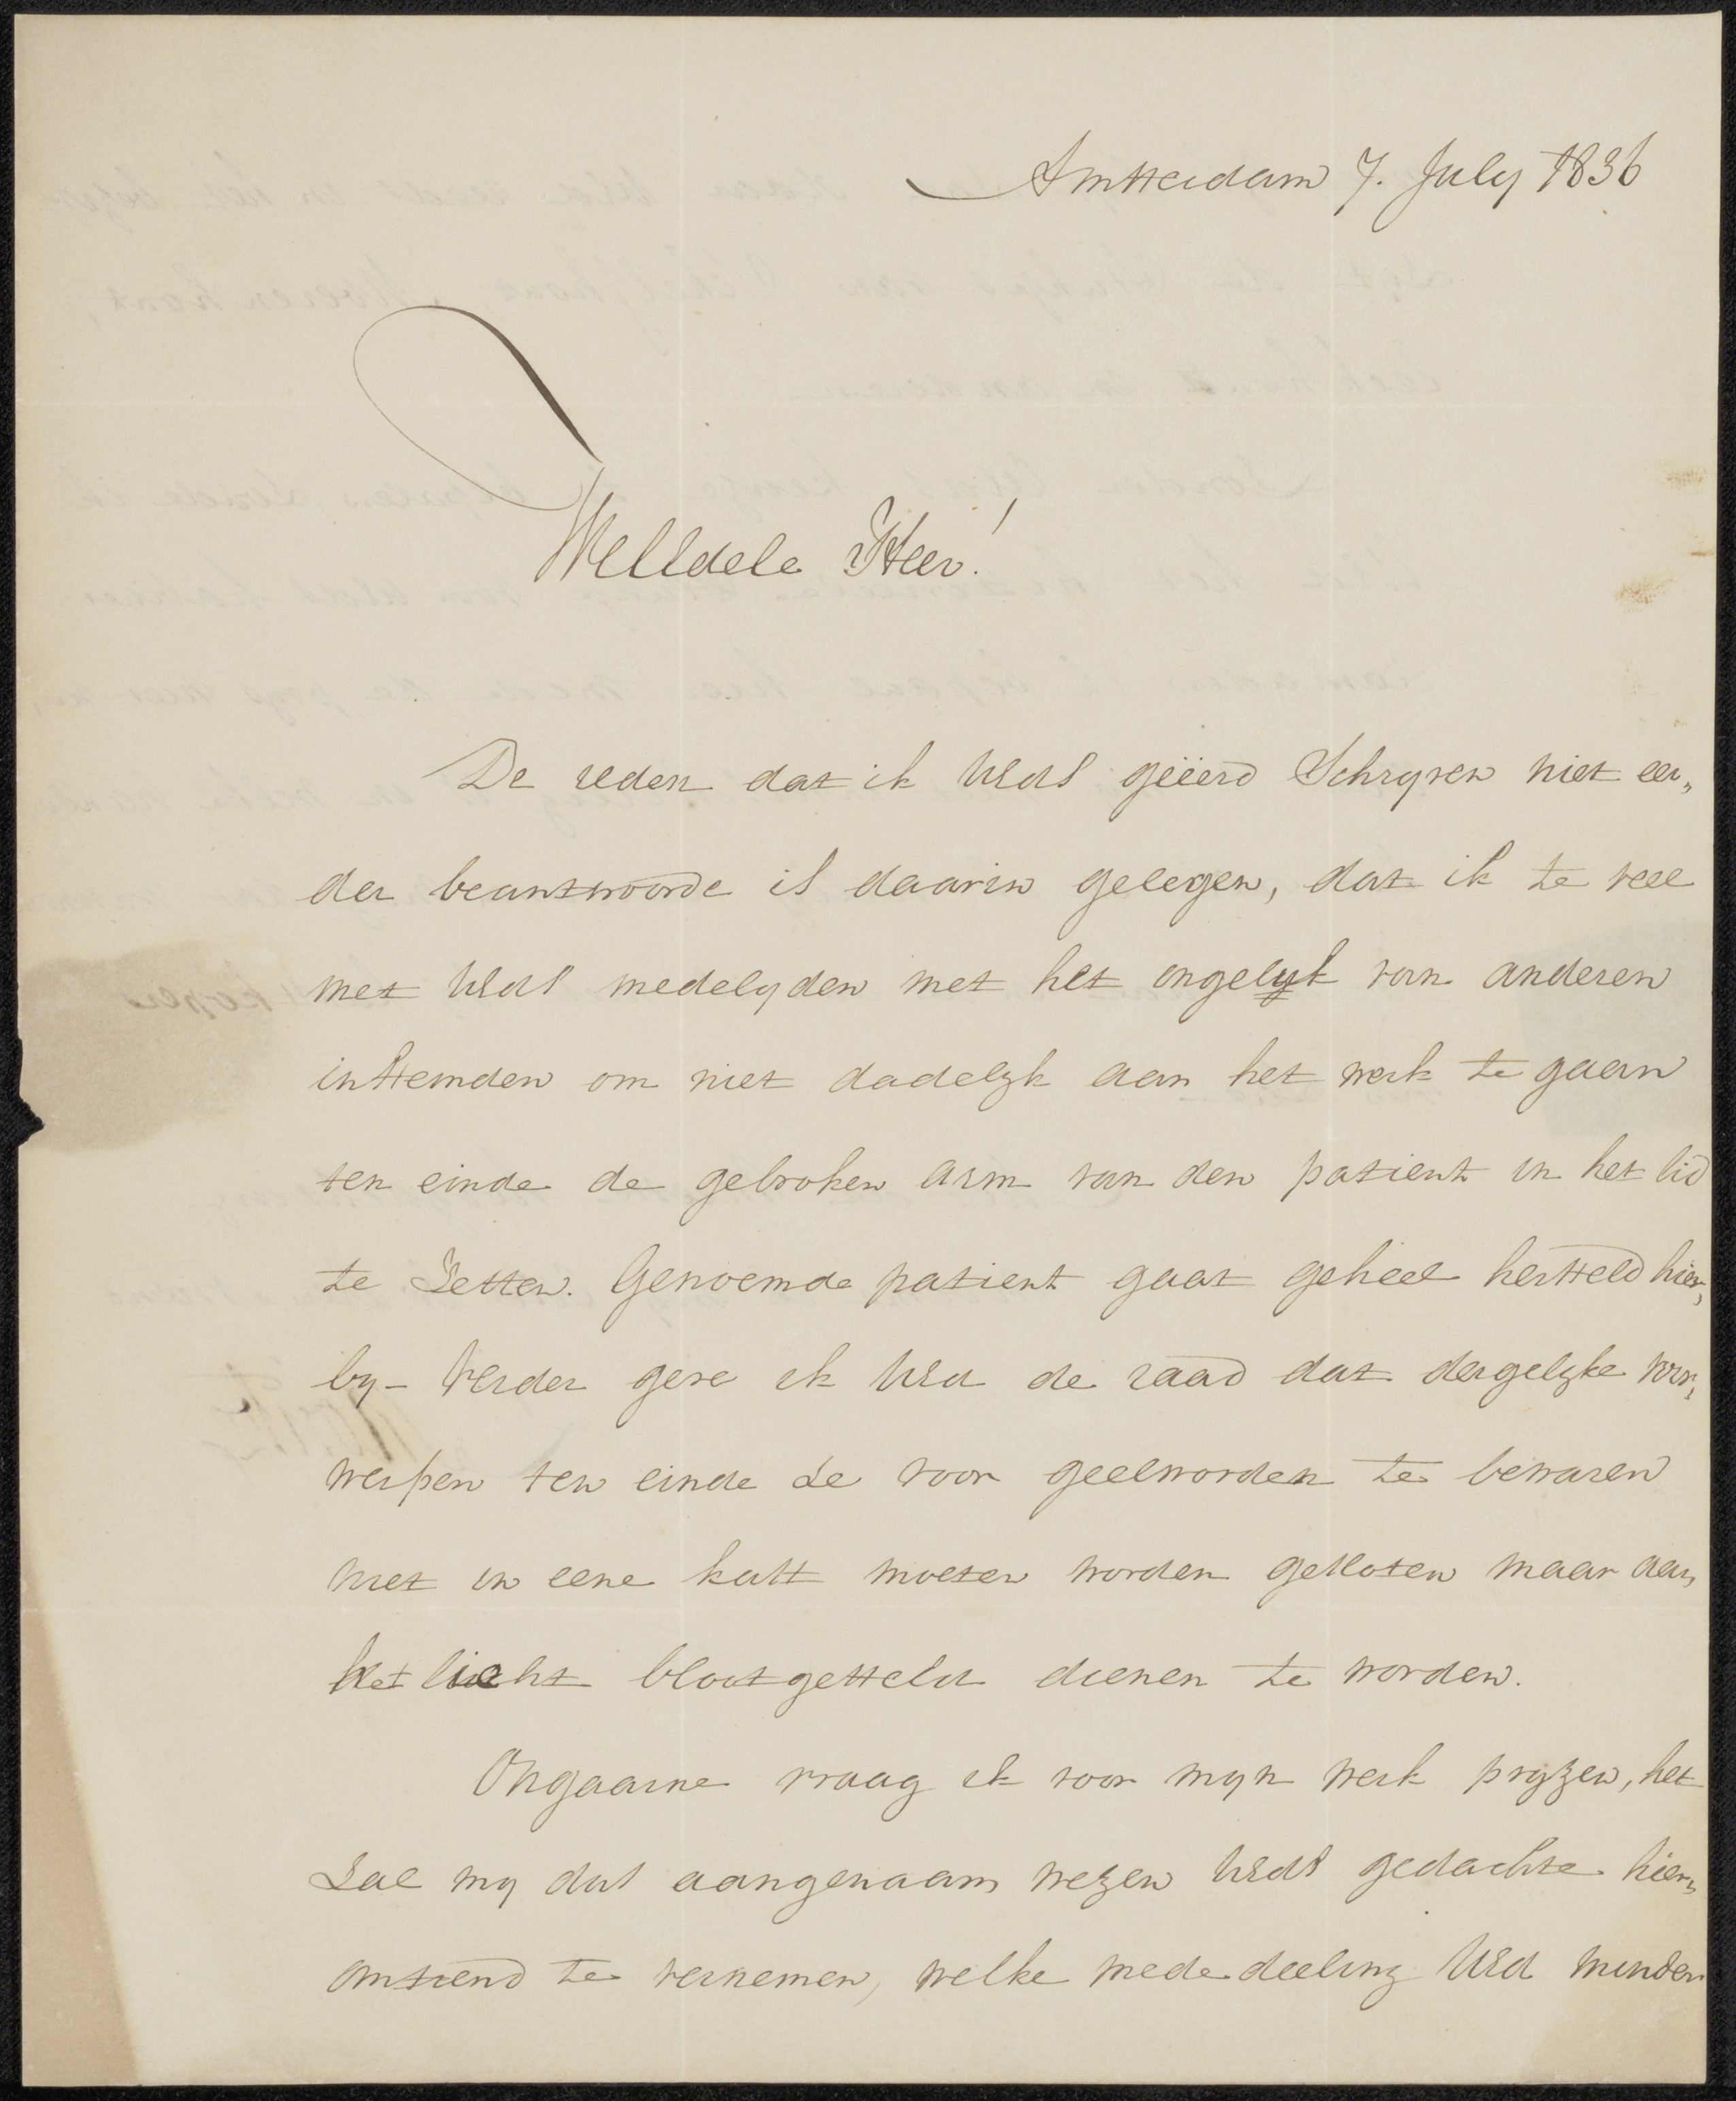 Amsterdam 7. July 1836
WelEdele Heer!
De reden dat ik UEds geëerd Schryven niet eer„
der beantwoorde is daarin gelegen, dat ik te veel
met UEds medelyden met het ongelyk van anderen
instemden om niet dadelyk aan het werk te gaan
ten einde de gebroken arm van den patient in het lid
te Zetten. Genoemde patient gaat geheel hersteld hier„
by – Verder geve ik UEd de raad dat dergelyke voor„
werpen ten einde ze voor geelworden te bewaren
niet in eene kast moeten worden gesloten maar aan
het licht blootgesteld dienen te worden.
Ongaarne vraag ik voor myn werk pryzen, het
Zal my dus aangenaam wezen UEds gedachte hier„
omtrend te vernemen, welke mededeeling UEd minder